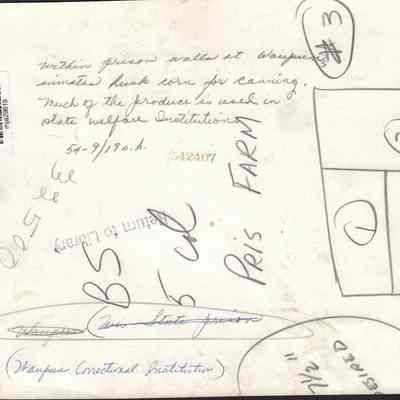 Within prison walls at Waupun
inmates husk corn for canning.
Much of the produce is used in
state welfare Institutions
54-9/19 o.h.
542407
# 3
Return to Library
BS
5 col
PRIS FARM
1
Waupun (Wis State prison
(Waupun Correctional Institution)
7 1/2"
DESIRED